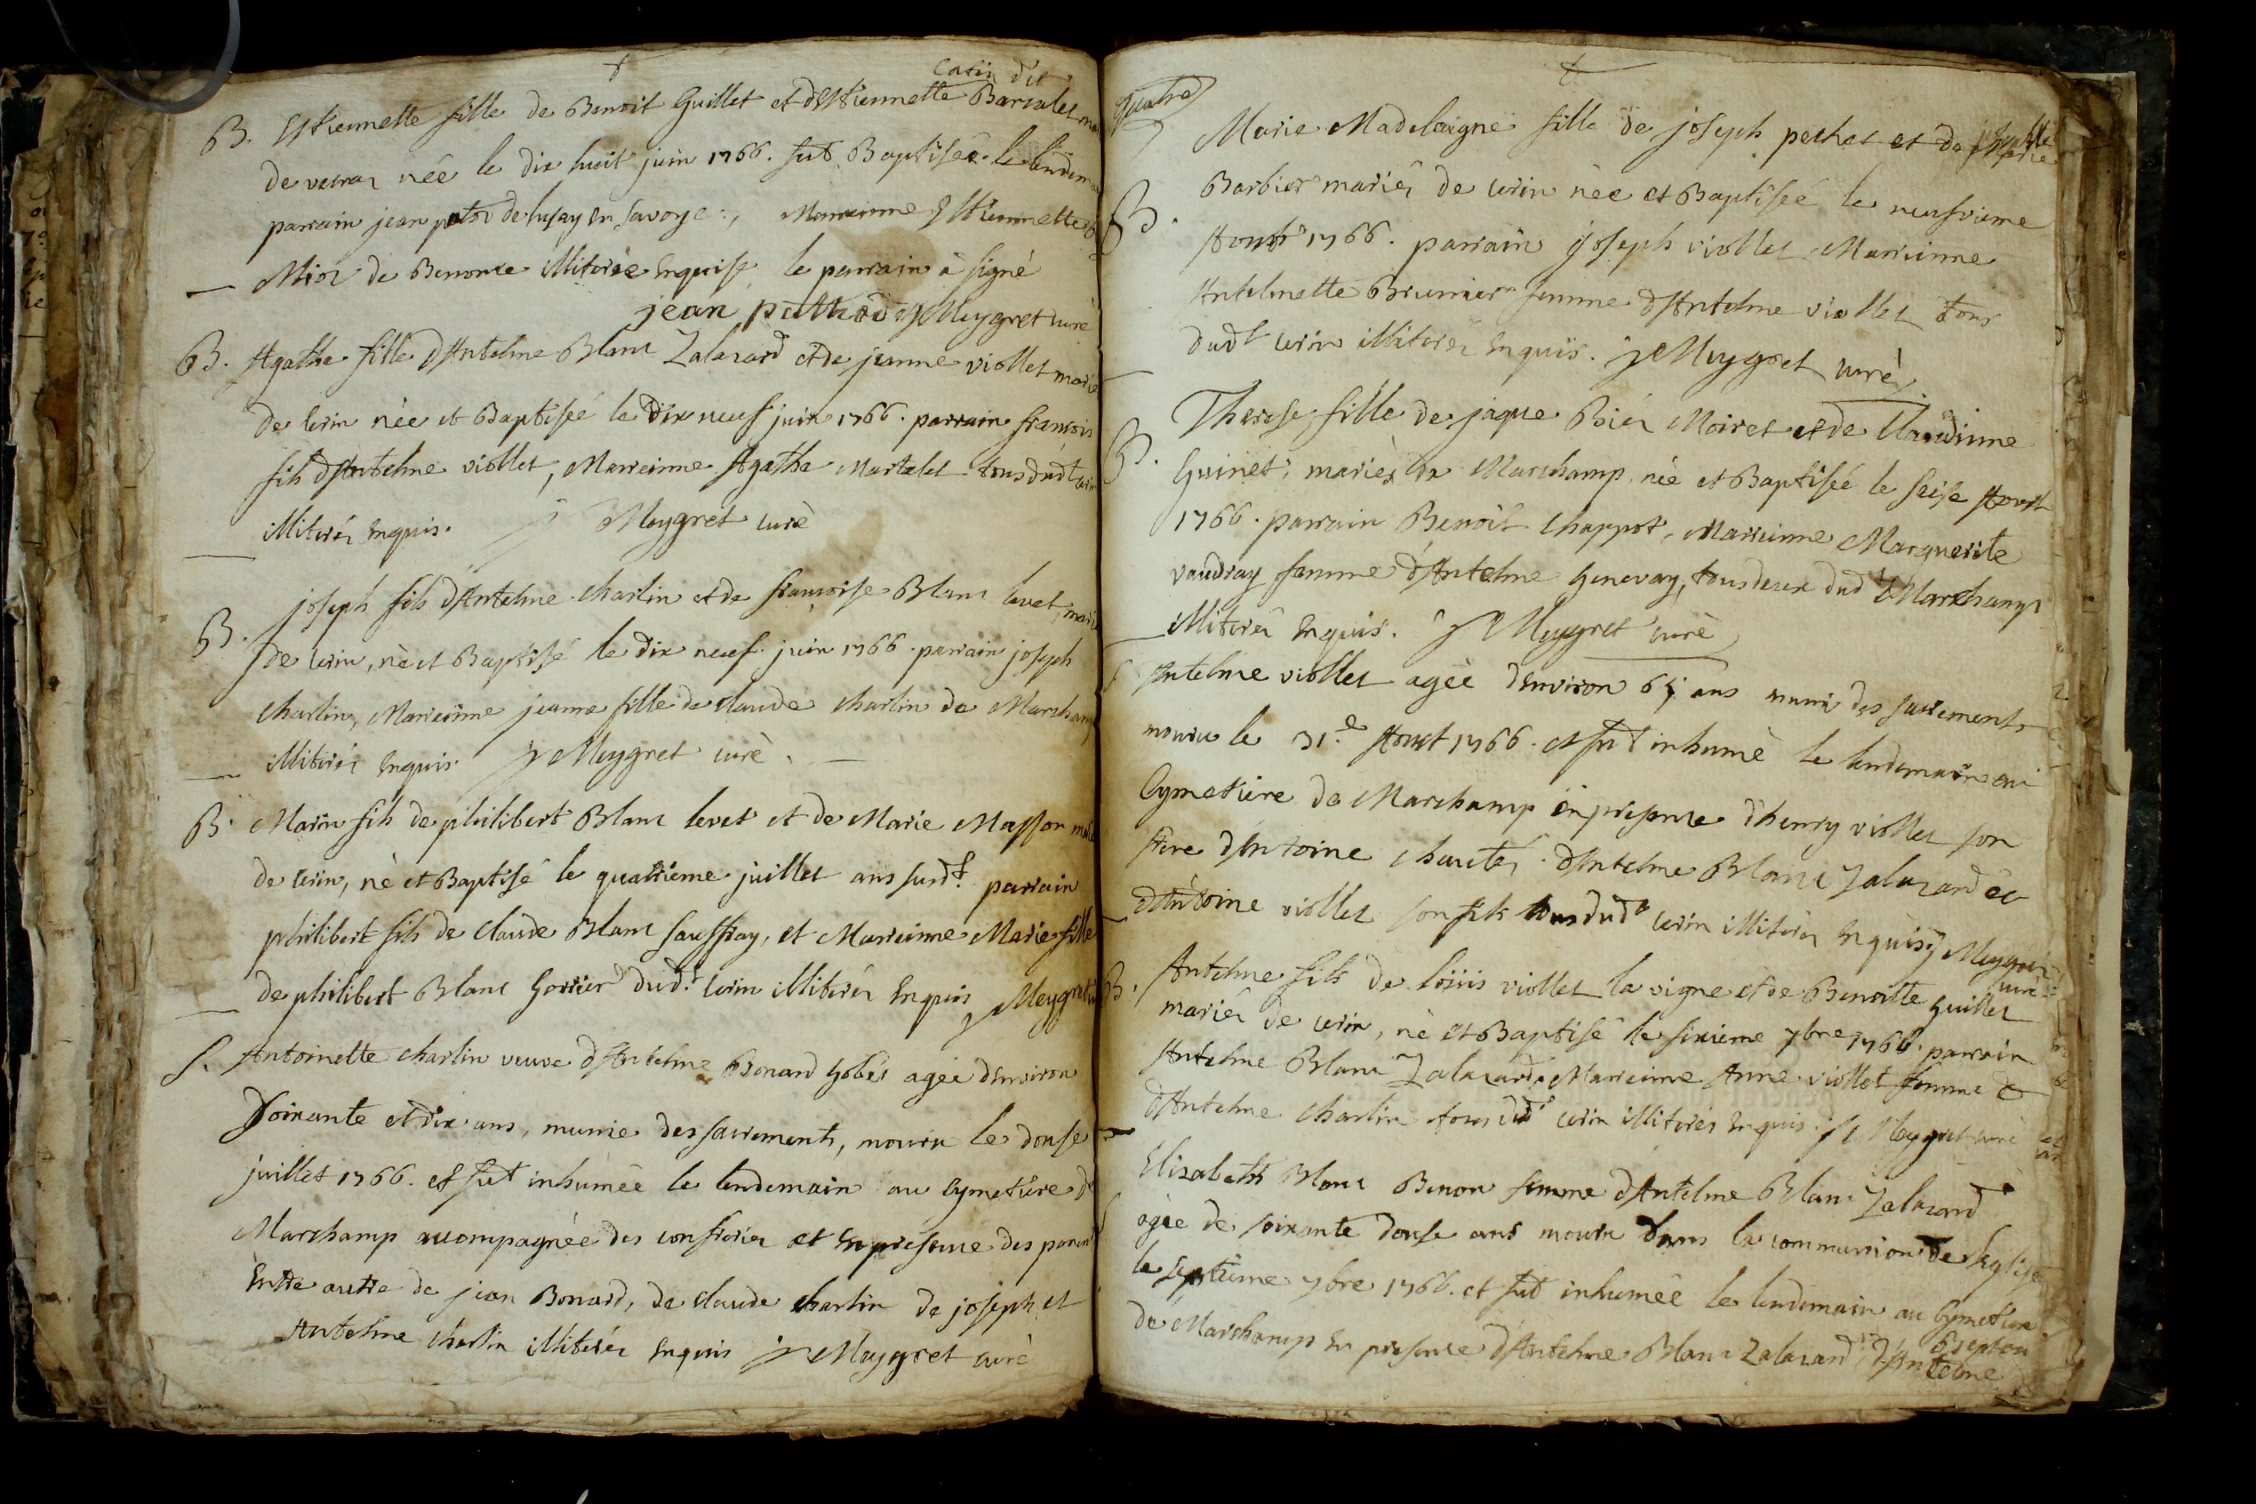 Catin dit
B. Estiennette fille de Benoit Guillet et dEstiennette Barralet
de née le dix huit juin 1766. fut Baptiseé. le lendemain
parrain jean de lusay en savoye. Marreinne Estiennette
de Benonce illiterée enquise le parrain à signé
jean Meygret curè
B. Agathe fille dAntelme Blanc Zalacard et de jeanne viollet mariés
de Cerin née et Baptiseé le dix neuf juin 1766. parrain francois
fils dAntelme viollet, Marreinne Agathe Martelet tous dudt Cerin
illiterés enquis. Meygret curè
B. joseph fils dAntelme charlin et de francoise Blanc levet, mariés
de Cerin, nè et Baptisé le dix neuf juin 1766. parrain joseph
charlin, Marreinne jeanne fille de claude charlin de Marchamp
illiterés enquis Meygret curè.
B. Marin fils de philibert Blanc levet et de Marie Masson mariés
de Cerin, nè et Baptisé le quatrieme juillet ans susdt. parrain
philibert fils de claude Blanc sauffray, et Marreinne Marie fille
de philibert Blanc Gorrier dudt. Cerin illiterés enquis Meygret
S. Antoinette charlin veuve dAntelme Bonard agée denviron
soixante et dix ans, munie des sacrements, mouru le douse
juillet 1766. et fut inhumèe le lendemain au Cymetiere de
Marchamp accompagnée des confreries et en présence des parents
Entre autre de jean Bonard, de claude charlin de joseph et
Antelme charlin illiterés enquis Meygret curè
quatre
Marie Madelaigne fille de joseph pechet et de josephte
B. Barbier mariés de Cerin née et Baptiseé le neufvieme
Aoust 1766. parrain joseph viollet Marreinne
Antelmette Brunier femme dAntelme viollet tous
dudt Cerin illiterés enquis. Meygret curè
B. Therese fille de jaque Biés Moiret et de Claudinne
Guinet, mariès de Marchamp, née et Baptiseé le seise Aoust
1766. parrain Benoit chappot, Marreinne Marguerite
vaudray famme dAntelme Genevay, tous deux dudt Marchamp
illiterés enquis. Meygret curè
S Antelme viollet agèe denviron ans muni des sacrements
mouru le 31.e Aoust 1766. et fut inhumè le lendemain au
Cymetiere de Marchamp en presence dhenry viollet son
frere dAntoine dAntelme Blanc Zalacard et
dAntoine viollet son fils tous dudt Cerin illiterés enquis Meygret
curè
B. Antelme fils de loüis viollet la vigne et de Benoitte Guillet
mariés de Cerin, nè et Baptisé le sixieme 7bre 1766. parrain
Antelme Blanc Zalacard. Marreinne Anne viollet femme
dAntelme charlin tous dudt Cerin illiterés enquis. Meygret curè
S Elizabeth Blanc Benon femme dAntelme Blanc Zalacard
agèe de soixante douse ans mouru dans la communion de leglise
le septieme 7bre 1766. et fut inhumée le lendemain au Cymetiere
de Marchamp en presence dAntelme Blanc Zalacard
dAntelme